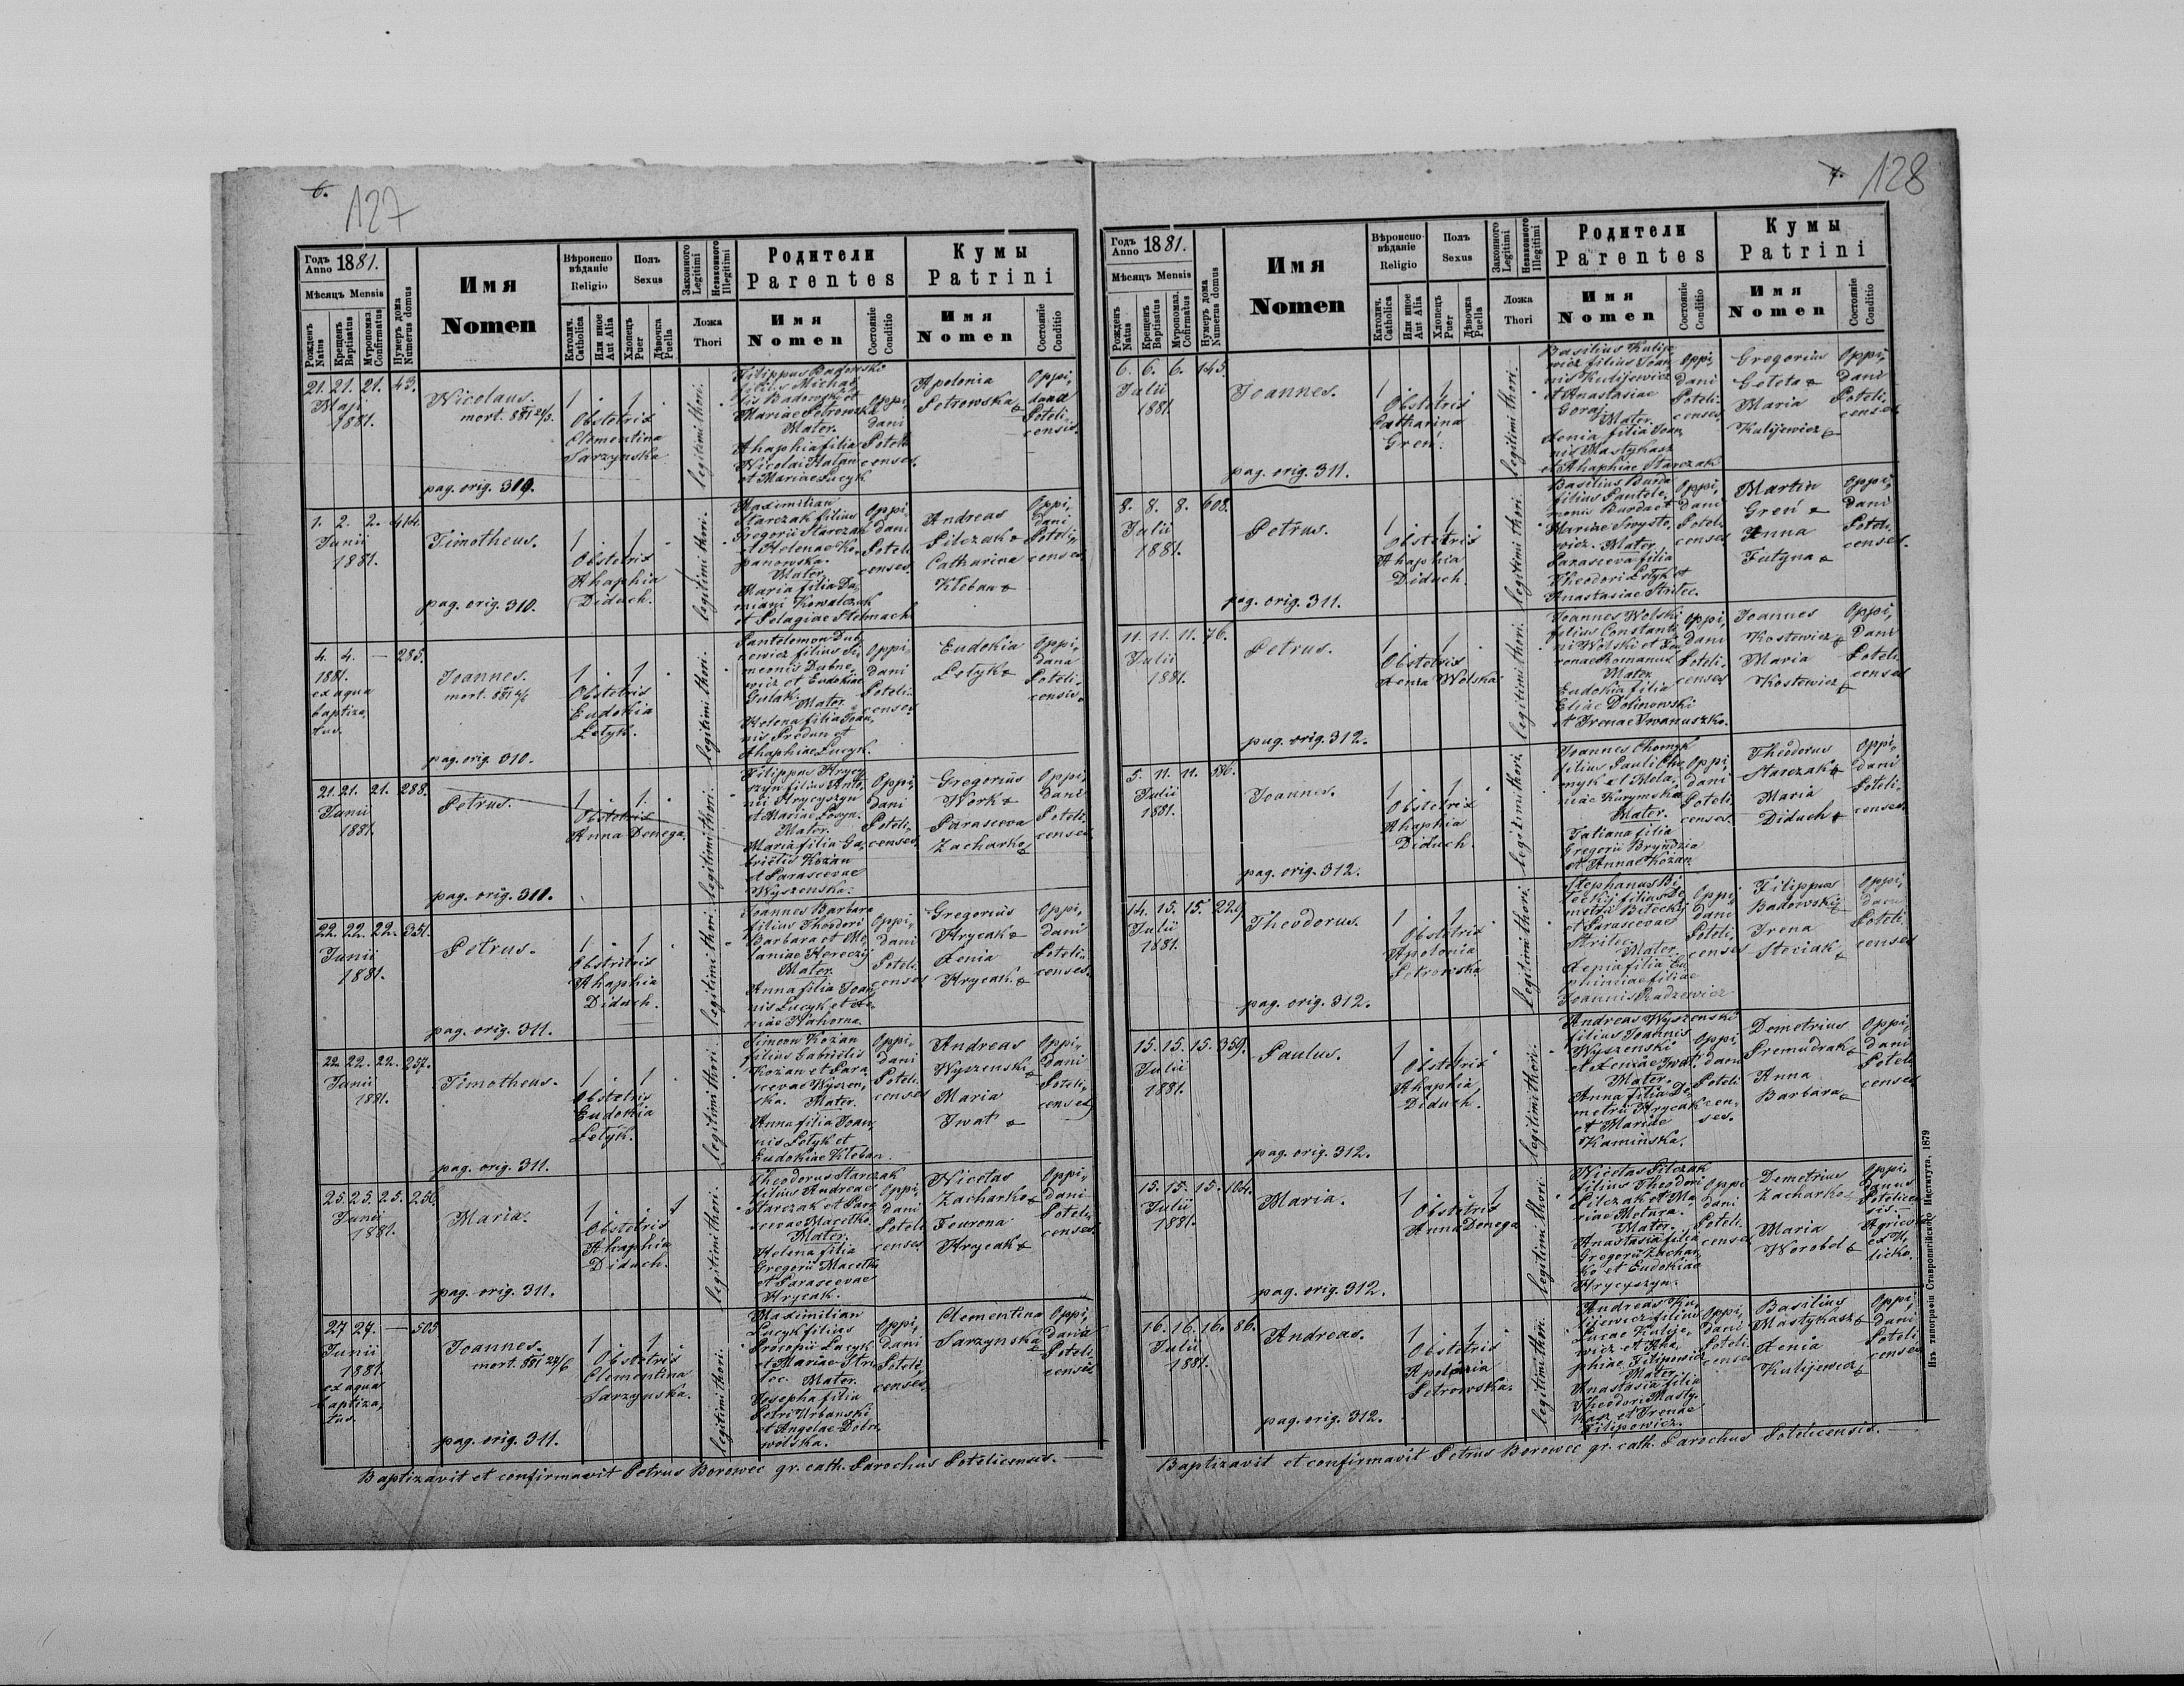 6.
127
Годъ Anno 1881.
Мѣсяцъ Mensis
Рожденъ Natus
Крещенъ Baptisatus
Мѵропомаз. Confirmatus
Нумеръ дома Numerus domus
Имя
Nomen
Вѣроисповѣданіе
Religio
Католич. Catholica
Или иное Aut Alia
Полъ
Sexus
Хлопецъ Puer
Дѣвочка Puella
Законного Legitimi
Незаконного Illegitimi
Ложа
Thori
Родители
Parentes
Имя
Nomen
Состояніе Conditio
Кумы
Patrini
Имя
Nomen
Состояніе Conditio
21. 21. 21. 43.
Maji
1881.
Nicolaus.
pag. orig. 310.
1 . 1 .
Obstetrix
Clementina
Sarzynska
legitimi thori.
Filippus Badowski
filius Michae
lis Badowski et
Mariae Petrowska
Mater.
Ahaphia filia
Nicolai Hatan
et Mariae Lucyk
Oppi,
dani
Poteli
censes.
Apolonia
Petrowska
Oppi,
dana
Poteli,
censis
1. 2. 2. 414.
Junii
1881.
Timotheus.
pag. orig. 310.
1 . 1 .
Obstetrix
Ahaphia
Diduch.
legitimi thori.
Maximilian
Starczak filius
Gregorii Starczak
et Helenae Ko,
panowska.
Mater.
Maria filia Da,
miani Kowalczuk
et Pelagiae Stelmach
Oppi,
dani
Poteli
censes.
Andreas
Pilczak
Catharina
Kleban
Oppi,
dani
Poteli,
censes.
4. 4. — 285.
1881.
ex aqua
baptiza,
tus.
Joannes.
pag. orig. 310.
1 . 1 .
Obstetrix
Eudokia
Letyk.
legitimi thori.
Pantelemon Dub,
newicz filius Si,
meonis Dubne,
wicz et Eudokiae
Gulak.
Mater
Helena filia Joan,
nis Prodan et
Ahaphiae Lucyk.
Oppi,
dani
Poteli
censes.
Eudokia
Letyk
Oppi,
dana
Poteli,
censis.
21. 21. 21. 288.
Junii
1881.
Petrus.
pag. orig. 310.
1 . 1 .
Obstetrix
Anna Denega.
legitimi thori.
Filippus Hrycy
szyn filius Anto,
nii Hrycyszyn
et Mariae Losyn.
Mater.
Maria filia Ga,
brielis Kozan
et Parascevae
Wyszenska.
Oppi,
dani
Poteli,
censes.
Gregorius
Work
Parasceva
Zacharko
Oppi,
dani
Poteli
censes
22. 22. 22. 351.
Junii
1881.
Petrus.
pag. orig. 311.
1 . 1 .
Obstetrix
Ahaphia
Diduch.
legitimi thori.
Joannes Barbara
filius Theodori
Barbara et Me,
laniae Hereczij
Mater.
Anna filia Joan,
nis Lucyk et Xe,
niae Nahorna.
Oppi,
dani
Poteli
censes
Gregorius
Hrycak
Xenia
Hrycak.
Oppi,
dani
Poteli,
censes.
22. 22. 22. 257.
Junii
1881.
Timotheus.
pag. orig. 311.
1 . 1 .
Obstetrix
Eudokia
Letyk.
legitimi thori.
Simeon Kozan
filius Gabrielis
Kozan et Para
scevae Wyszen,
ska. Mater.
Anna filia Joan,
nis Letyk et
Eudokiae Kleban.
Oppi,
dani
Poteli
censes
Andreas
Wyszenski
Maria
Iwat
Oppi,
dani
Poteli,
censes
25. 25. 25. 256.
Junii
1881.
Maria.
pag. orig. 311.
1 . . 1
Obstetrix
Ahaphia
Diduch.
legitimi thori.
Theodorus Starczak
filius Andreae
Starczak et Para
scevae Macetko
Mater.
Helena filia
Gregorii Macetko
et Parascevae
Hrycak.
Oppi,
dani
Poteli
censes
Nicetas
Zacharko
Feurona
Hrycak
Oppi,
dani
Poteli,
censes
27 27. — 503
Junii
1881.
ex aqua
baptiza,
tus.
Joannes.
pag. orig. 311.
1 . 1 .
Obstetrix
Clementina
Sarzynska.
legitimi thori.
Maximilian
Lucyk filius
Procopii Lucyk
et Mariae Stri
tec. Mater.
Josepha filia
Petri Urbanski
et Angelae Dobro
wolska.
Oppi,
dani
Poteli,
censes
Clementina
Sarzynska
Oppi,
dana
Poteli
censis
Baptizavit et confirmavit Petrus Borowec gr. cath. Parochus Potelicensis.
7.
128
Годъ Anno 1881.
Мѣсяцъ Mensis
Рожденъ Natus
Крещенъ Baptisatus
Мѵропомаз. Confirmatus
Нумеръ дома Numerus domus
Имя
Nomen
Вѣроисповѣданіе
Religio
Католич. Catholica
Или иное Aut Alia
Полъ
Sexus
Хлопецъ Puer
Дѣвочка Puella
Законного Legitimi
Незаконного Illegitimi
Ложа
Thori
Родители
Parentes
Имя
Nomen
Состояніе Conditio
Кумы
Patrini
Имя
Nomen
Состояніе Conditio
6. 6. 6. 145.
Julii
1881.
Joannes.
pag. orig. 311.
1 . 1 .
Obstetrix
Catharina
Greń.
legitimi thori.
Basilius Kulije
wicz filius Joan,
nis Kulijewicz
et Anastasiae
Goraj.
Mater.
Xenia filia Joan
nis Mastykasz
et Ahaphiae Starczak
Oppi,
dani
Poteli,
censes
Gregorius
Geleta
Maria
Kulijewicz
Oppi,
dani
Poteli,
censes
8. 8. 8. 608.
Julii
1881.
Petrus.
pag. orig. 311.
1 . 1 .
Obstetrix
Ahaphia
Diduch.
legitimi thori.
Basilius Burda
filius Pantele,
monis Burda et
Mariae Smysto,
wicz. Mater.
Parasceva filia
Theodori Letyk et
Anastasiae Stritec.
Oppi,
dani
Poteli
censes
Martin
Greń
Anna
Futyna
Oppi,
dani
Poteli,
censes.
11. 11. 11. 76.
Julii
1881.
Petrus.
pag. orig. 312.
1 . 1 .
Obstetrix
Xenia Wolska
legitimi thori.
Joannes Wolski
filius Constanti
ni Wolski et Eu
renae Romanus
Mater
Eudokia filia
Eliae Dolinowski
et Irenae Iwanuszko.
Oppi,
dani
Poteli,
censes
Joannes
Kostewicz
Maria
Kostewicz
Oppi,
dani
Poteli
censes
5. 11. 11. 596.
Julii
1881.
Joannes.
pag. orig. 312.
1 . 1 .
Obstetrix
Ahaphia
Diduch.
legitimi thori.
Joannes Chomyk
filius Pauli Cho,
myk et Mela,
niae Kurymska
Mater.
Tatiana filia
Gregorii Bryndzia
et Annae Kozan
Oppi,
dani
Poteli
censes.
Theodorus
Starczak
Maria
Diduch
Oppi,
dani
Poteli,
censes
14. 15. 15. 229.
Julii
1881.
Theodorus.
pag. orig. 312.
1 . 1 .
Obstetrix
Apolonia
Petrowska
legitimi thori.
Stephanus Bi
lecki filius De
metrii Bilecki
et Parascevae
Stritec.
Mater.
Xenia filia Eu
phimiae filiae
Joannis Radzewicz
Oppi,
dani
Poteli,
censes
Filippus
Badowski
Irena
Steciak
Oppi,
dani
Poteli
censes
15. 15. 15. 359.
Julii
1881.
Paulus.
pag. orig. 312.
1 . 1 .
Obstetrix
Ahaphia
Diduch.
legitimi thori.
Andreas Wyszenski
filius Joannis
Wyszenski
et Xeniae Iwat.
Mater.
Anna filia De,
metrii Hrycak
et Mariae
Kaminska.
Oppi,
dani
Poteli
cen,
ses.
Demetrius
Premudrak
Anna
Barbara
Oppi,
dani
Poteli
censes
15. 15. 15. 104.
Julii
1881.
Maria.
pag. orig. 312.
1 . . 1
Obstetrix
Anna Denega
legitimi thori
Nicetas Pilczak
filius Theodori
Pilczak et Ma,
riae Melura.
Mater.
Anastasia filia
Gregorii Zachar,
ko et Eudokiae
Hrycyszyn.
Oppi,
dani
Poteli.
censes
Demetrius
Zacharko
Maria
Worobel
Oppi,
danus
Potelicen
sis.
16. 16. 16. 86.
Julii
1881.
Andreas.
pag. orig. 312.
1 . 1 .
Obstetrix
Apolonia
Petrowska.
legitimi thori.
Andreas Ku,
lijewicz filius
Lucae Kulije,
wicz et Aha,
phiae Filipowicz
Mater.
Anastasia filia
Theodori Masty,
kasz et Irenae
Filipowicz.
Oppi,
dani
Poteli
censes
Basilius
Mastykasz
Xenia
Kulijewicz
Oppi,
dani
Poteli,
censes
Baptizavit et confirmavit Petrus Borowec gr. cath. Parochus Potelicensis.
Изъ типографіи Ставропигійского Института, 1879